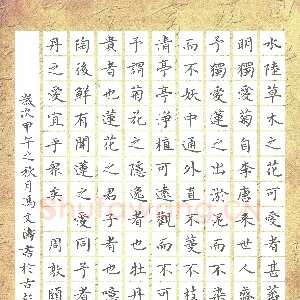 水陸草木之花可愛者甚蕃
明獨愛菊自李唐來世人
予獨愛蓮之出淤泥而不染
而不妖中通外直不蔓不枝
清亭亭淨植可遠觀而不可
予謂菊花之隱逸者也牡丹
貴者也蓮花之君子者也
陶後鮮有聞蓮之愛同予者
丹之愛宜乎眾矣 周敦頤
歲次甲午之秋月馮文濤書於古